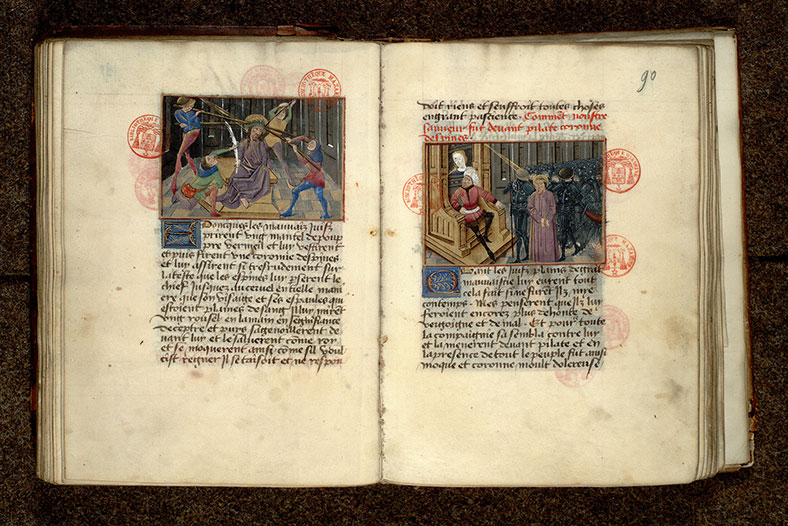 Doncques les mauvaiz juifz
prirent ung mantel de pour
pre vermeil et luy vestirent
et puis firent une coronne despines
et luy assirent si tresrudement sur
la teste que les espines luy perserent le
chief jusques au cervel en telle mani
ere que son visaige et ses espaules qui
estoient plaines de sang Ilz luy mirent
ving rousel en la main en segnifiance
deceptre et puis sagenoillerent de
vant luy et le saluerent come roy
et se moquerent ainsi come sil voul
cist regner Il se taisoit et ne respon
90
doit riens et seuffroit toutes choses
en grant pascience. Comment nostre
sauveur fut devant pilate coronne
despines
Quant les juifz plains de grāt
mauvaistie luy eurent tout
cela fait sine furēt Ilz mie
contemps. Mes penserent que Ilz luy
feroient encorez plus de honte de
vergoigne et de mal. Et pour toute
la compaignie sa sembla contre luy
et la menerent devant pilate et en
la presence de tout le peuple fut ainsi
moque et coronne moult dolereuse
BIBLIOTHÈQUE MAZARINE